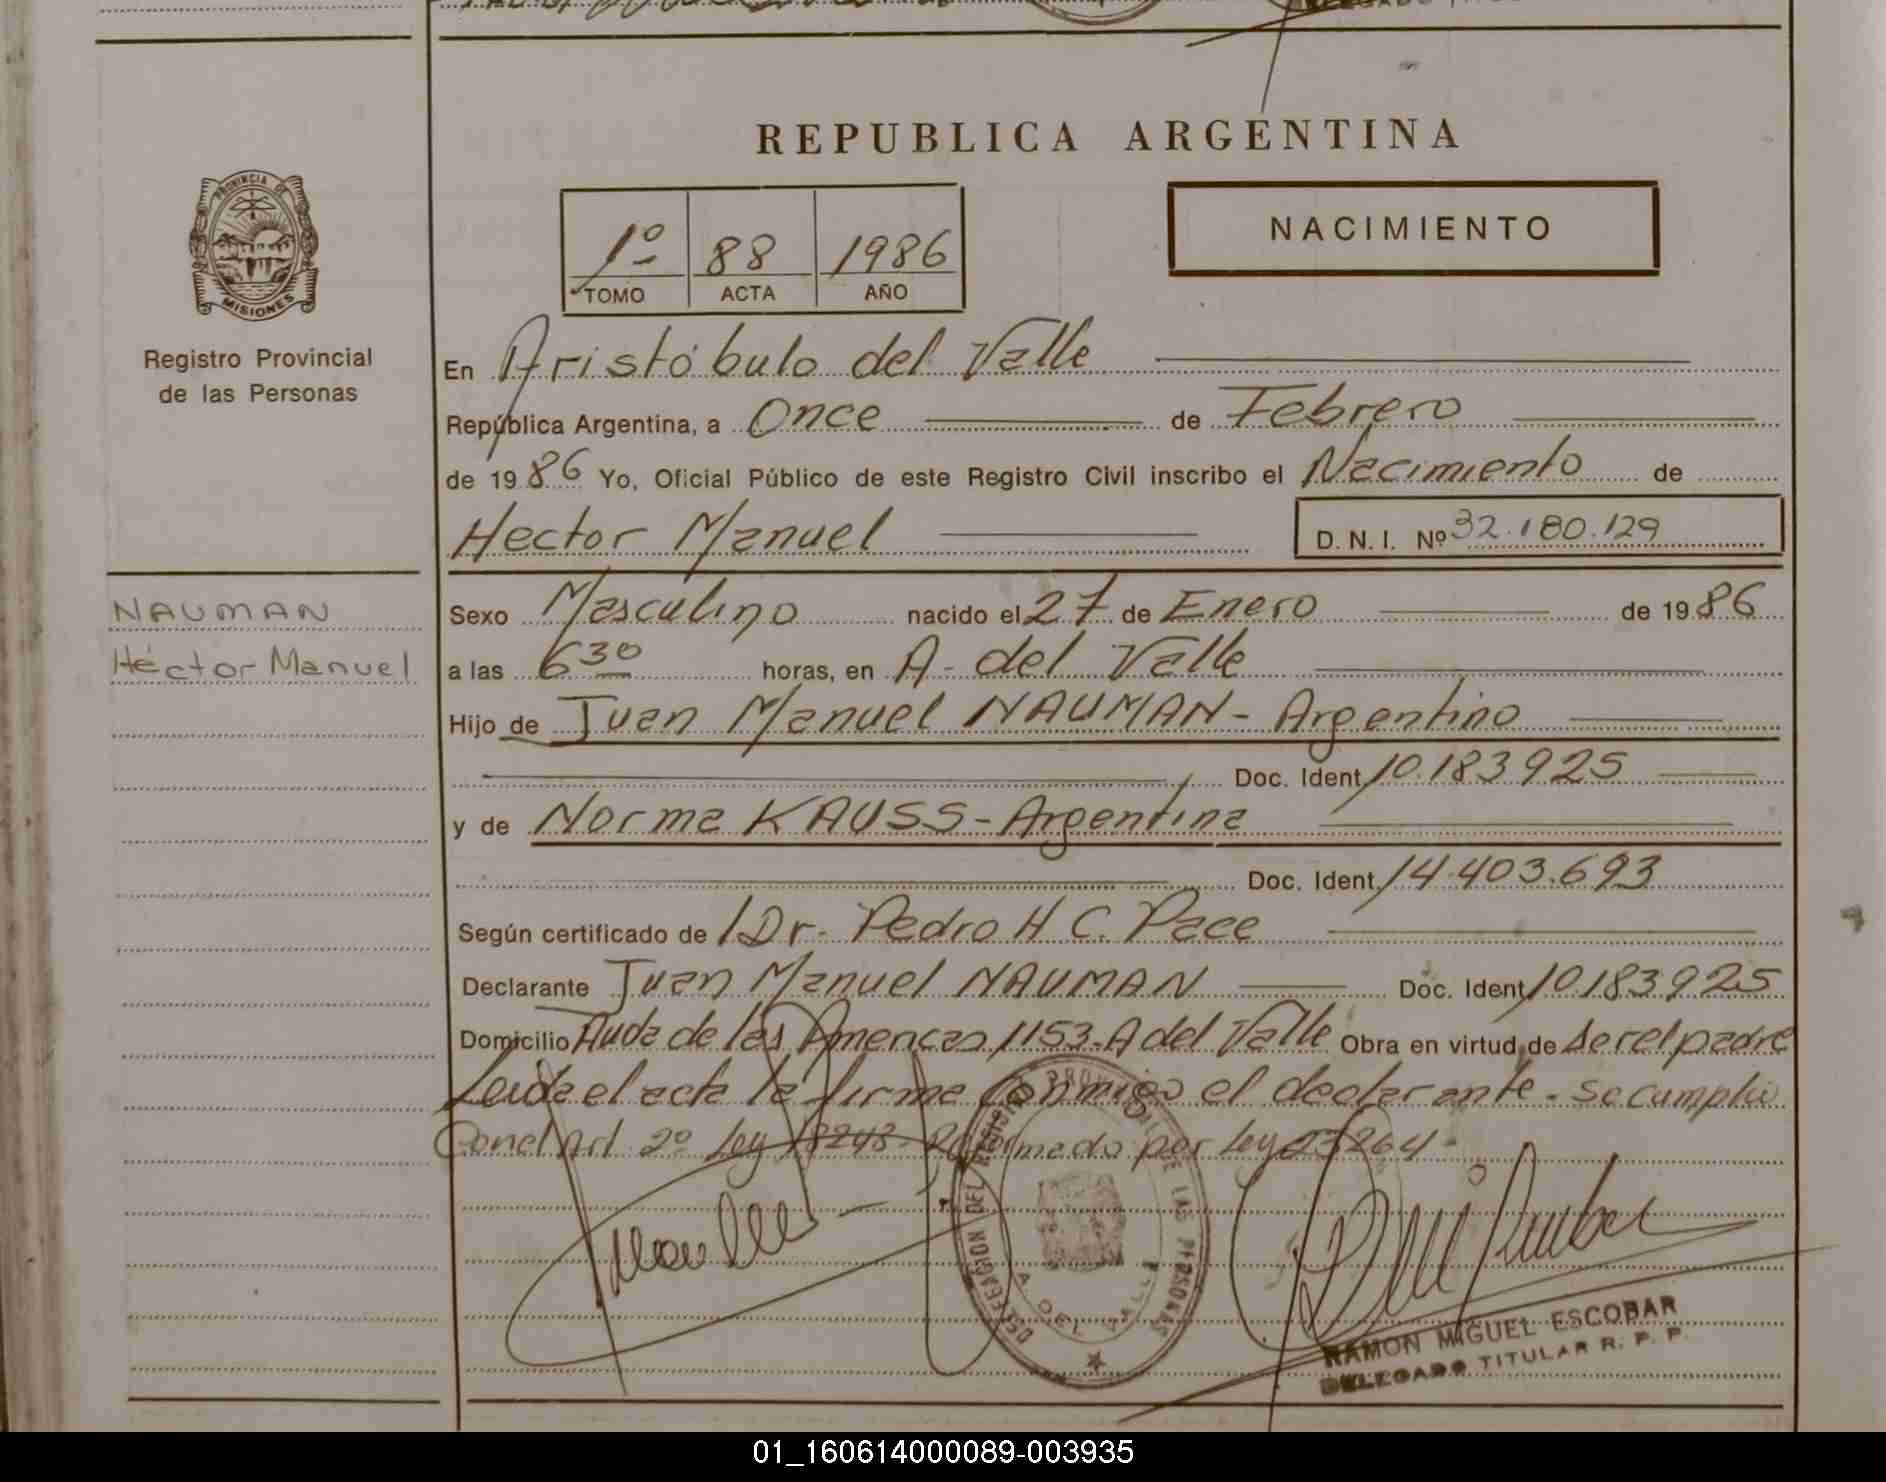 REPUBLICA ARGENTINA
PROVINCIA DE
MISIONES
Registro Provincial
de las Personas
1º 88 1986
TOMO ACTA AÑO
NACIMIENTO
En Aristóbulo del Valle
República Argentina, a Once de Febrero
de 1986 Yo, Oficial Público de este Registro Civil inscribo el Nacimiento de
Hector Manuel D. N. I. Nº 32.180.129
NAUMAN
Héctor Manuel
Sexo Masculino nacido el 27 de Enero de 1986
a las 6 30 horas, en A. del Valle
Hijo de Juan Manuel NAUMAN - Argentino
Doc. Ident. 10.183.925
y de Norma KAUSS - Argentina
Doc. Ident. 14.403.693
Según certificado de Dr. Pedro H C. Pace
Declarante Juan Manuel NAUMAN Doc. Ident. 10.183.925
Domicilio Avda de las Americas 1153 - A del Valle Obra en virtud de ser el padre
Leida el acta la firma conmigo el declarante - se cumplio
Con el Art. 2º Ley 18248 - Reformado por Ley 23264 -
DELEGACION DEL REGISTRO PROVINCIAL DE LAS PERSONAS
A. DEL VALLE
RAMON MIGUEL ESCOBAR
DELEGADO TITULAR R. P. P.
01_160614000089-003935